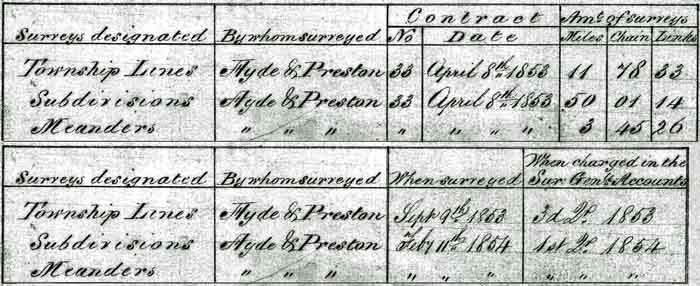 Contract Amt of surveys
Surveys designated By whom surveyed No Date Miles Chain Links
Township Lines Hyde & Preston 33 April 8th 1853 11 78 33
Subdivisions Hyde & Preston 33 April 8th 1853 50 01 14
Meanders " " " " " " " 3 45 26
When charged in the
Surveys designated By whom surveyed When surveyed Sur Genls Accounts
Township Lines Hyde & Preston Sept 9th 1853 3d Qr 1853
Subdivisions Hyde & Preston Feby 11th 1854 1st Qr 1854
Meanders " " " " " " " " "